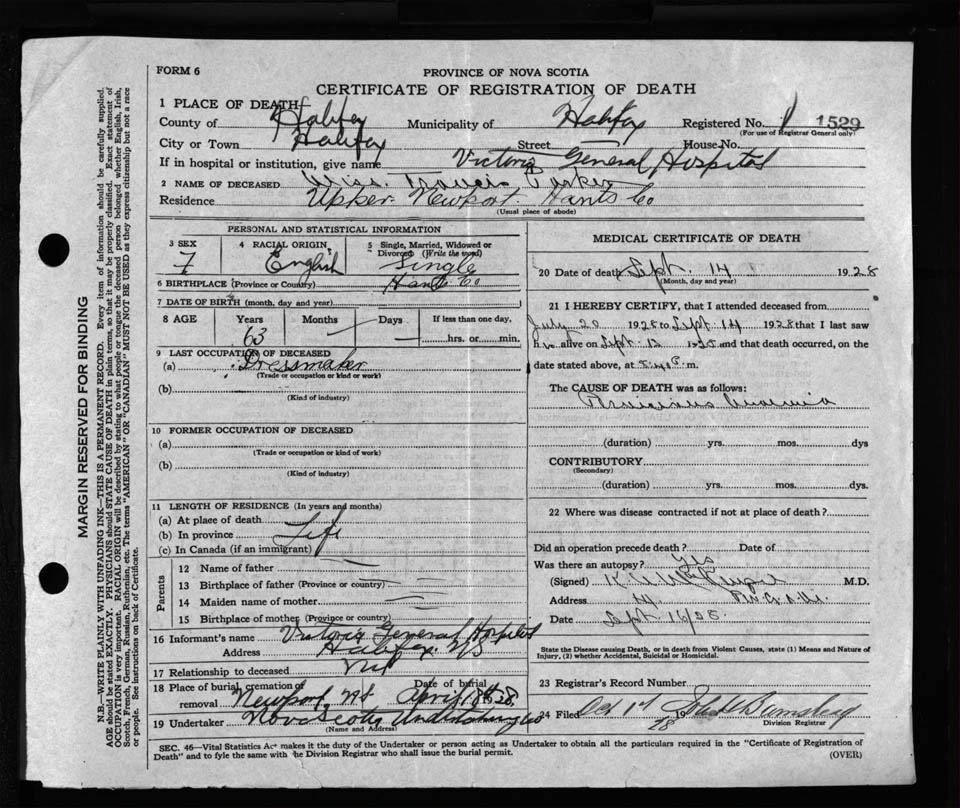 FORM 6
PROVINCE OF NOVA SCOTIA
CERTIFICATE OF REGISTRATION OF DEATH
1 PLACE OF DEATH
County of Halifax Municipality of Halifax Registered No. 1529
(For use of Registrar General only)
City or Town Halifax Street House No.
If in hospital or institution, give name Victoria General Hospital
2 NAME OF DECEASED Miss. Francis Parker
Residence Upper Newport. Hants Co
(Usual place of abode)
PERSONAL AND STATISTICAL INFORMATION
3 SEX 4 RACIAL ORIGIN 5 Single, Married, Widowed or Divorced (Write the word)
F English Single
6 BIRTHPLACE (Province or Country) Hants Co
7 DATE OF BIRTH (month, day and year)
8 AGE Years Months Days If less than one day,
63 hrs. or min.
9 LAST OCCUPATION OF DECEASED
(a) Dressmaker
(Trade or occupation or kind or work)
(b)
(Kind of industry)
10 FORMER OCCUPATION OF DECEASED
(a)
(Trade or occupation or kind of work)
(b)
(Kind of industry)
11 LENGTH OF RESIDENCE (In years and months)
(a) At place of death
(b) In province Life
(c) In Canada (if an immigrant)
Parents
12 Name of father
13 Birthplace of father (Province or country)
14 Maiden name of mother
15 Birthplace of mother (Province or country)
16 Informant's name Victoria General Hospital
Address Halifax. NS
17 Relationship to deceased Nil
18 Place of burial, cremation or removal Newport NS Date of burial April 18th 28
19 Undertaker Nova Scotia Undertaking Co
(Name and Address)
MEDICAL CERTIFICATE OF DEATH
20 Date of death Sept. 14 1928
(Month, day and year)
21 I HEREBY CERTIFY, that I attended deceased from
July 20 1928 to Sept 14 1928 that I last saw
alive on Sept. and that death occurred, on the
date stated above, at m.
The CAUSE OF DEATH was as follows:
Pernicious Anaemia
(duration) yrs. mos. dys
CONTRIBUTORY
(Secondary)
(duration) yrs. mos. dys.
22 Where was disease contracted if not at place of death?
Did an operation precede death? Date of
Was there an autopsy? Yes
(Signed) M.D.
Address
Date Sept. 16/28
State the Disease causing Death, or in death from Violent Causes, state (1) Means and Nature of
Injury, (2) whether Accidental, Suicidal or Homicidal.
23 Registrar's Record Number
24 Filed Oct 1st 1928
Division Registrar
SEC. 46—Vital Statistics Act makes it the duty of the Undertaker or person acting as Undertaker to obtain all the particulars required in the "Certificate of Registration of
Death" and to fyle the same with the Division Registrar who shall issue the burial permit.
(OVER)
MARGIN RESERVED FOR BINDING
N.B.—WRITE PLAINLY WITH UNFADING INK—THIS IS A PERMANENT RECORD. Every item of information should be carefully supplied.
AGE should be stated EXACTLY. PHYSICIANS should STATE CAUSE OF DEATH in plain terms, so that it may be properly classified. Exact statement of
OCCUPATION is very important. RACIAL ORIGIN will be described by stating to what people or tongue the deceased person belonged whether English, Irish,
Scotch, French, German, Russian, Ruthenian, etc. The terms "AMERICAN" OR "CANADIAN" MUST NOT BE USED as they express citizenship but not a race
or people. See instructions on back of Certificate.